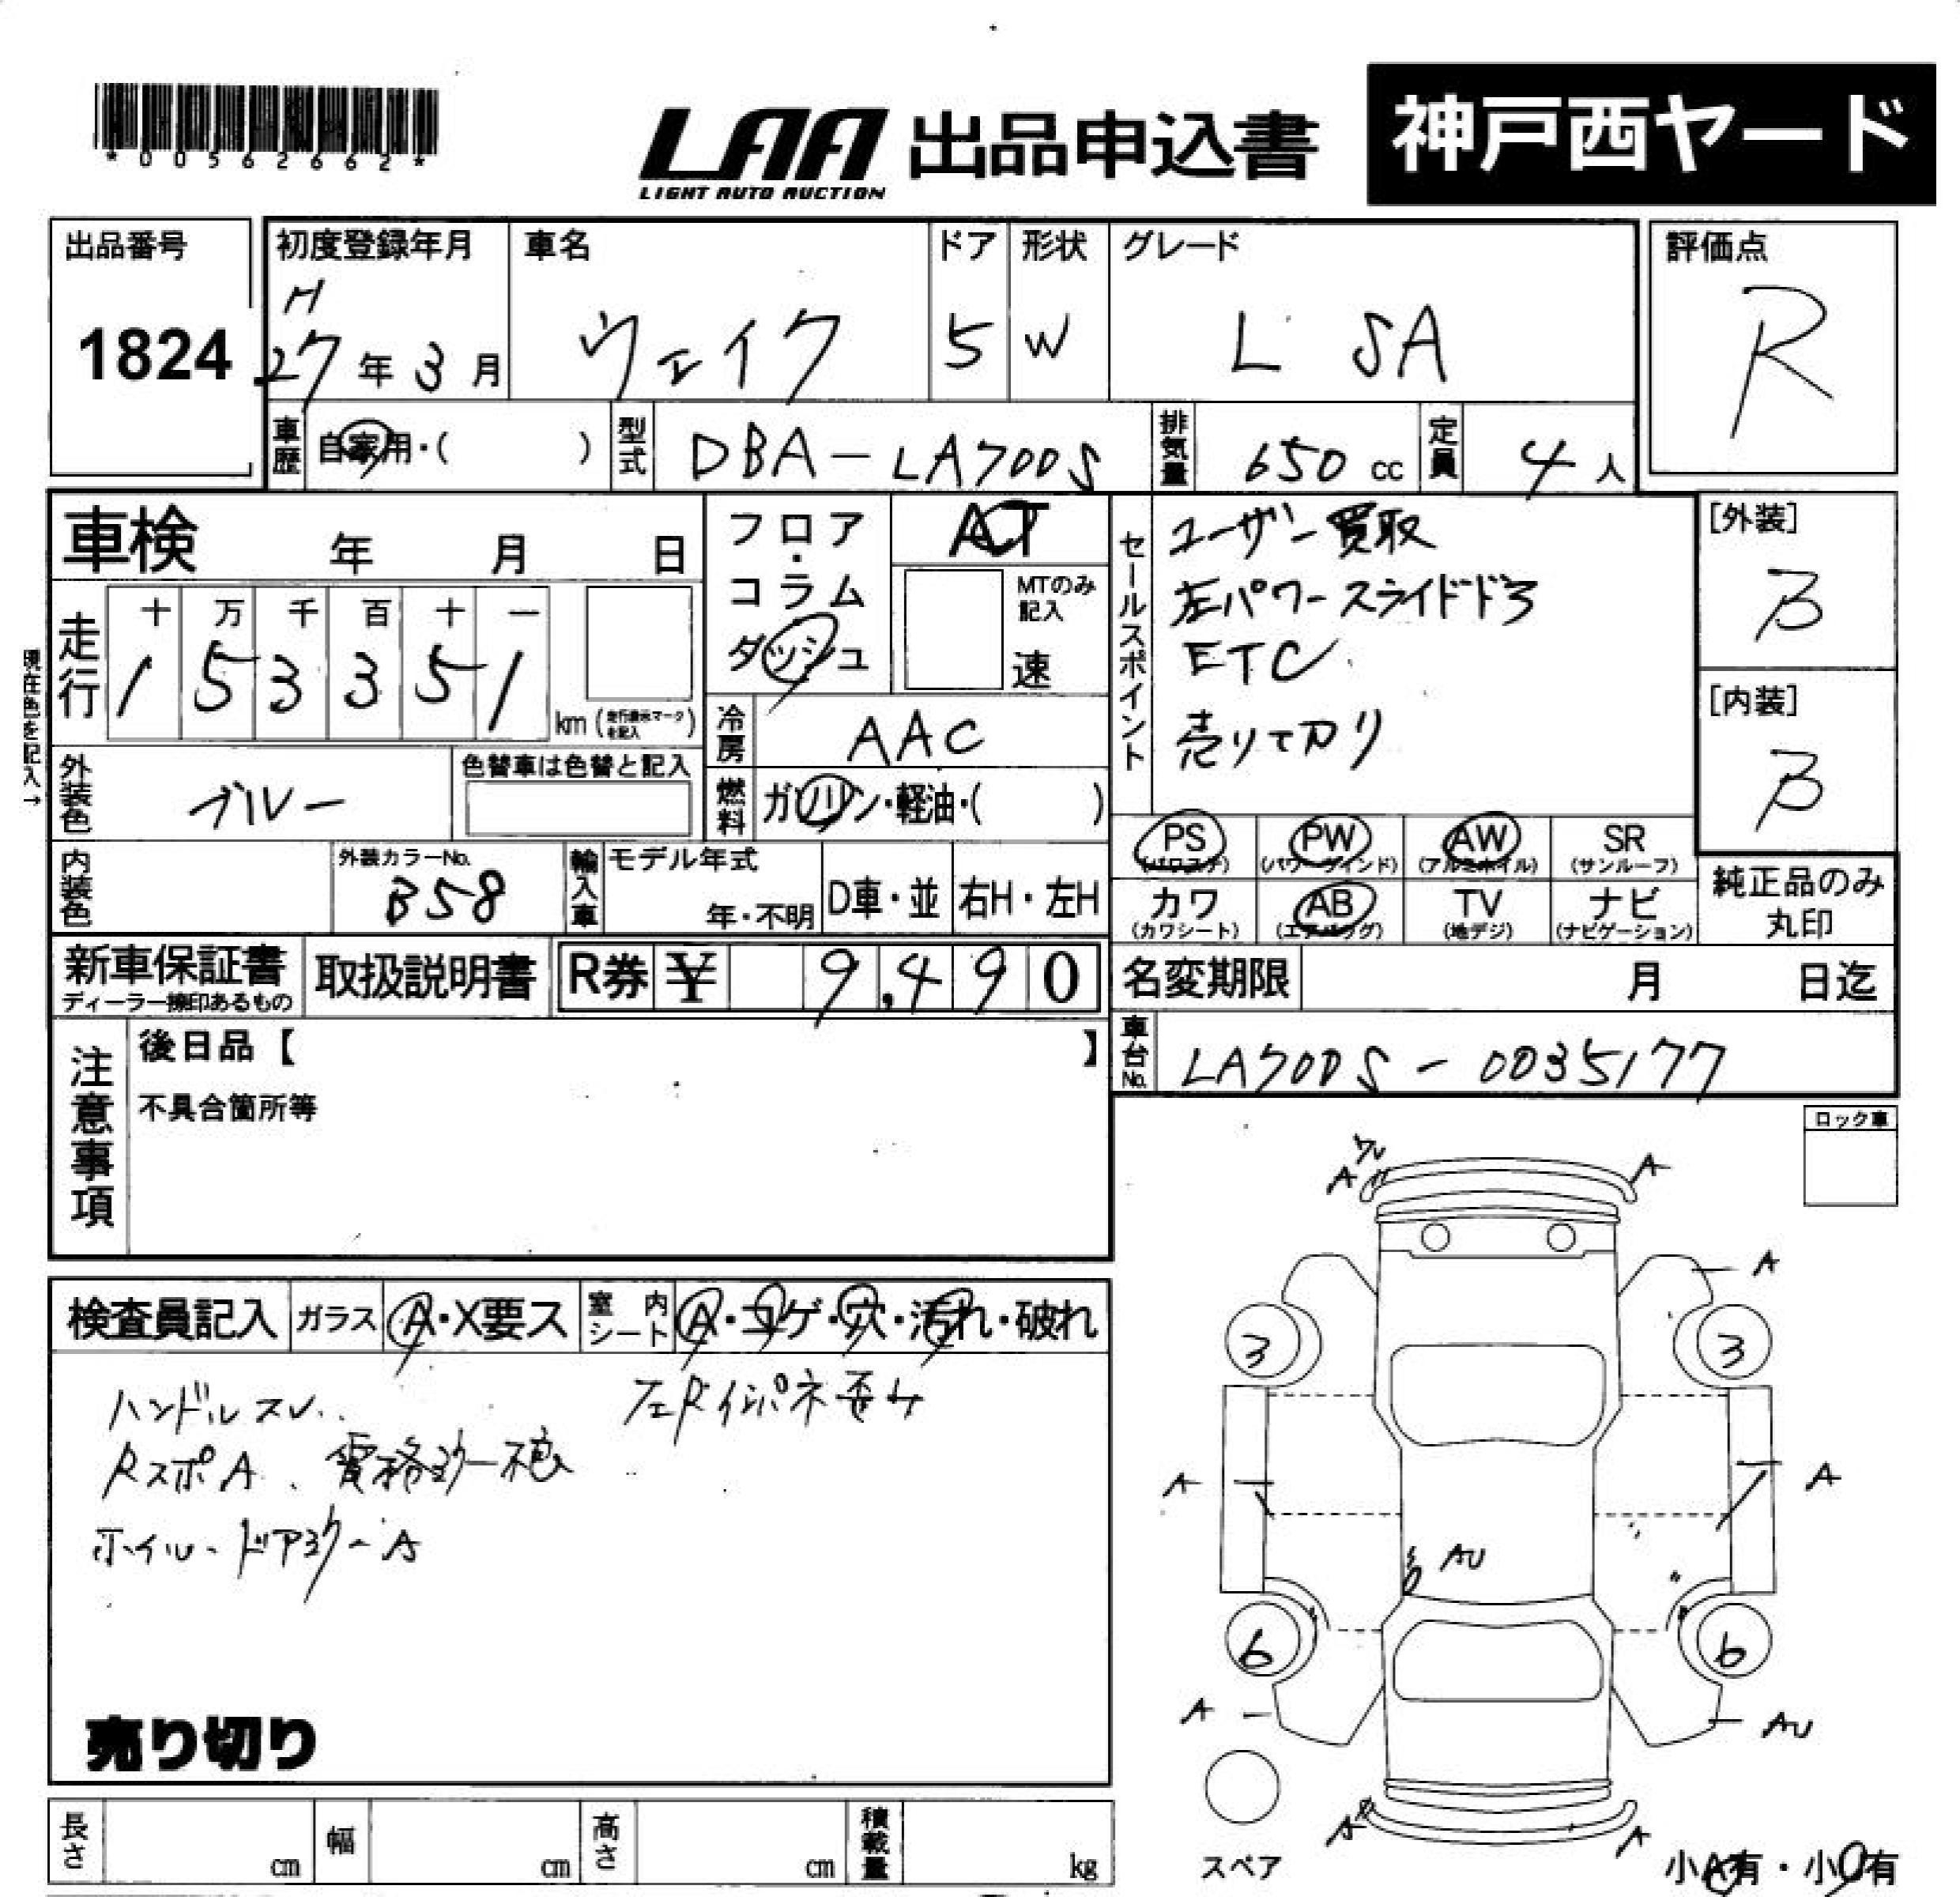 *00562662*
LAA
LIGHT AUTO AUCTION
出品申込書
神戸西ヤード
出品番号
1824
初度登録年月
H
27年3月
車名
ウェイク
ドア
5
形状
W
グレード
L SA
評価点
R
車歴
自家用・( )
型式
DBA-LA700S
排気量
650 cc
定員
4人
車検
年 月 日
フロア・コラム
ダッシュ
AT
MTのみ記入
速
セールスポイント
ユーザー買取
左パワースライドドア
ETC
売り切り
[外装]
B
[内装]
B
現在色を記入→
走行
十 万 千 百 十 一
1 5 3 3 5 1
km (走行表示マークを記入)
冷房
AAC
外装色
ブルー
色替車は色替と記入
燃料
ガソリン・軽油・( )
PS
(パワステ)
PW
(パワーウィンド)
AW
(アルミホイル)
SR
(サンルーフ)
内装色
外装カラーNo.
B58
輸入車
モデル年式
年・不明
D車・並
右H・左H
カワ
(カワシート)
AB
(エアバッグ)
TV
(地デジ)
ナビ
(ナビゲーション)
純正品のみ
丸印
新車保証書
ディーラー捺印あるもの
取扱説明書
R券 ¥ 9,490
名変期限
月 日迄
車台No.
LA700S-0035177
注意事項
後日品【 】
不具合箇所等
ロック車
検査員記入
ガラス
A・X要ス
室内シート
A・コゲ・穴・汚れ・破れ
ハンドルスレ
RスポA、電格ミラー穂
左Rインパネ歪み
ホイル・ドアミラーA
売り切り
A
A
A
3
3
A
A
AU
6
6
A
AU
A
A
スペア
小A有・小U有
長さ
cm
幅
cm
高さ
cm
積載量
kg